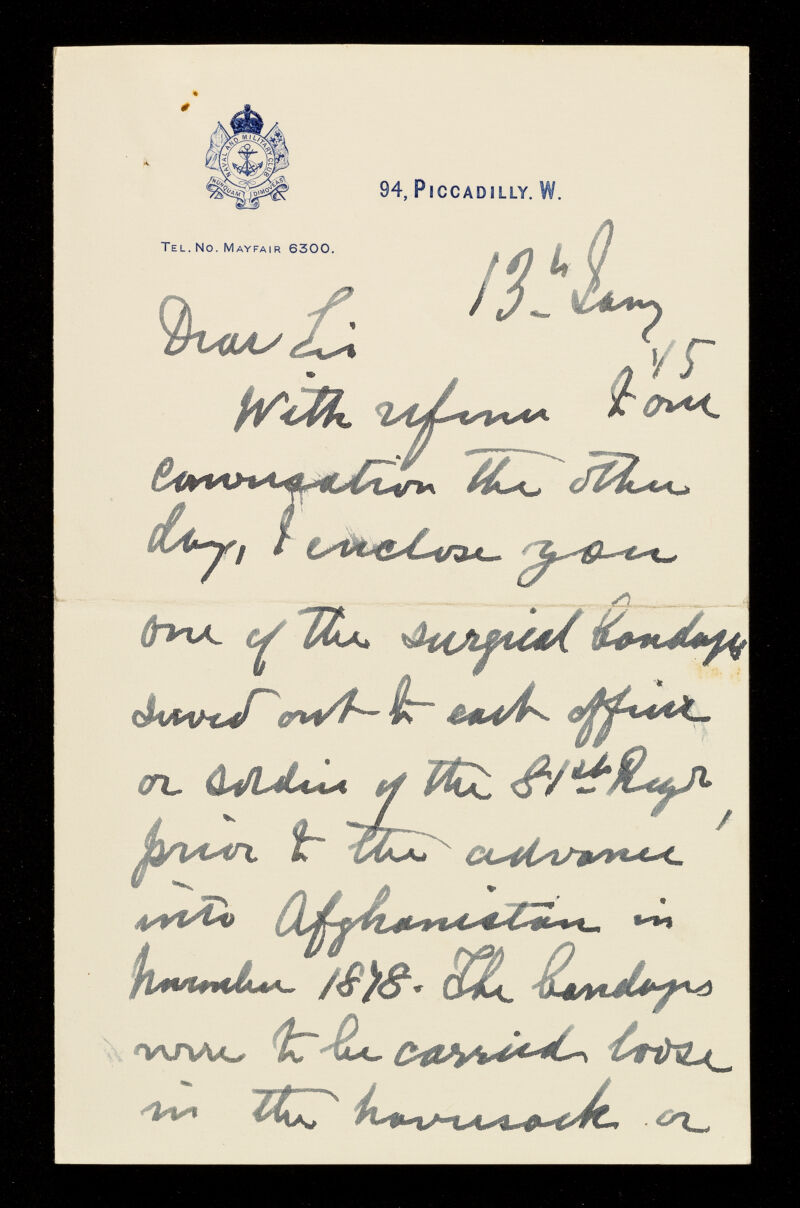 NAVAL AND MILITARY CLUB
NUNQUAM DIMOVEAR
94, PICCADILLY. W.
TEL. NO. MAYFAIR 6300.
13th Jany
15
Dear Sir
With reference to our
conversation the other
day, I enclose you
one of the surgical bandages
served out to each officer
or soldier of the 81st Regt,
prior to the advance
into Afghanistan in
November 1878. The bandages
were to be carried loose
in the haversack or